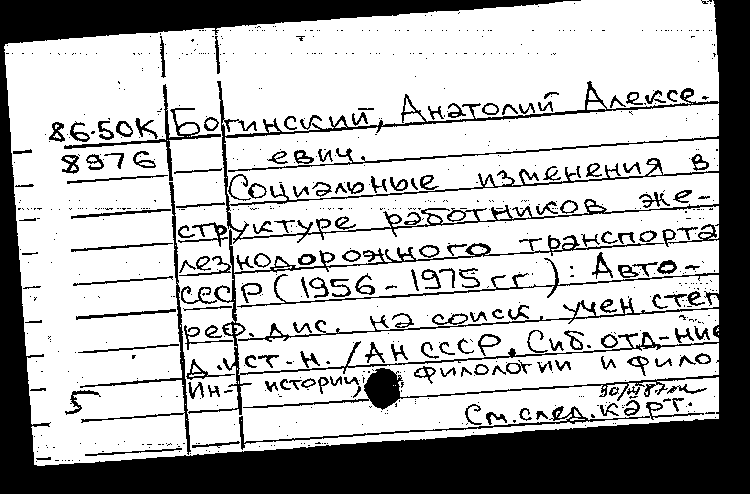 86-50К Богинский, Анатолий Алексе-
8976 евич.
Социальные изменения в
структуре работников же-
лезнодорожного транспорта
СССР (1956-1975 гг.): Авто-
реф. дис. на соиск. учен. степ
д. ист. н. / АН СССР. Сиб. отд-ние
Ин-т истории, филологии и фило-
5
См. след. карт.